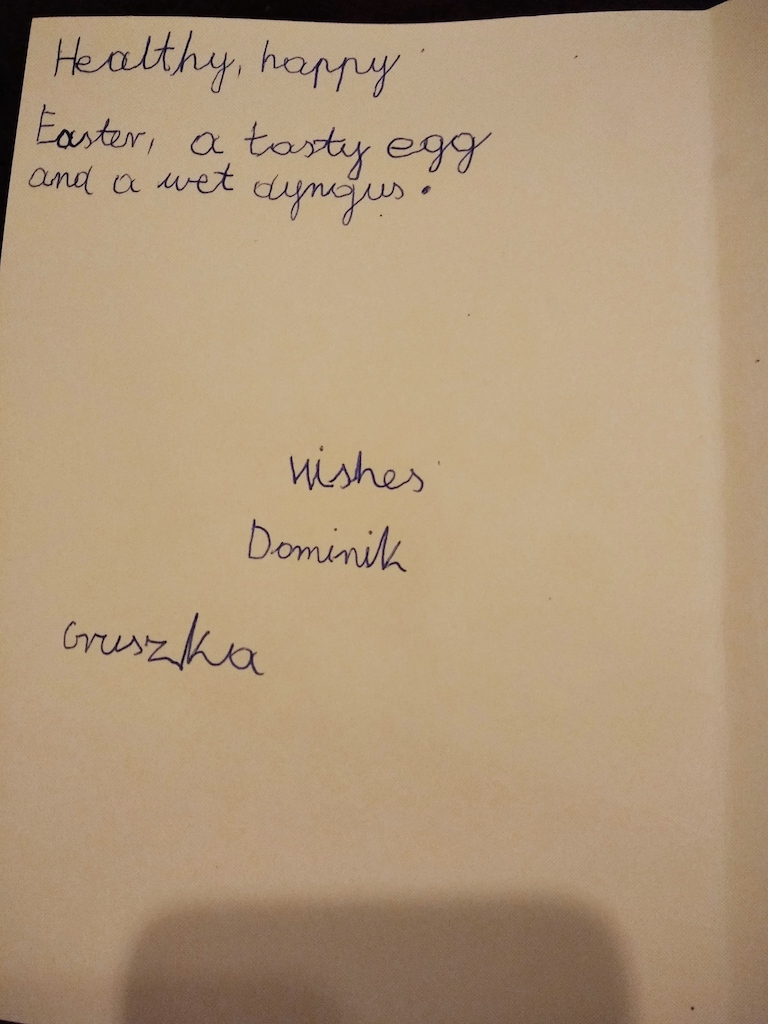 Healthy, happy
Easter, a tasty egg
and a wet dyngus.
Wishes
Dominik
Gruszka